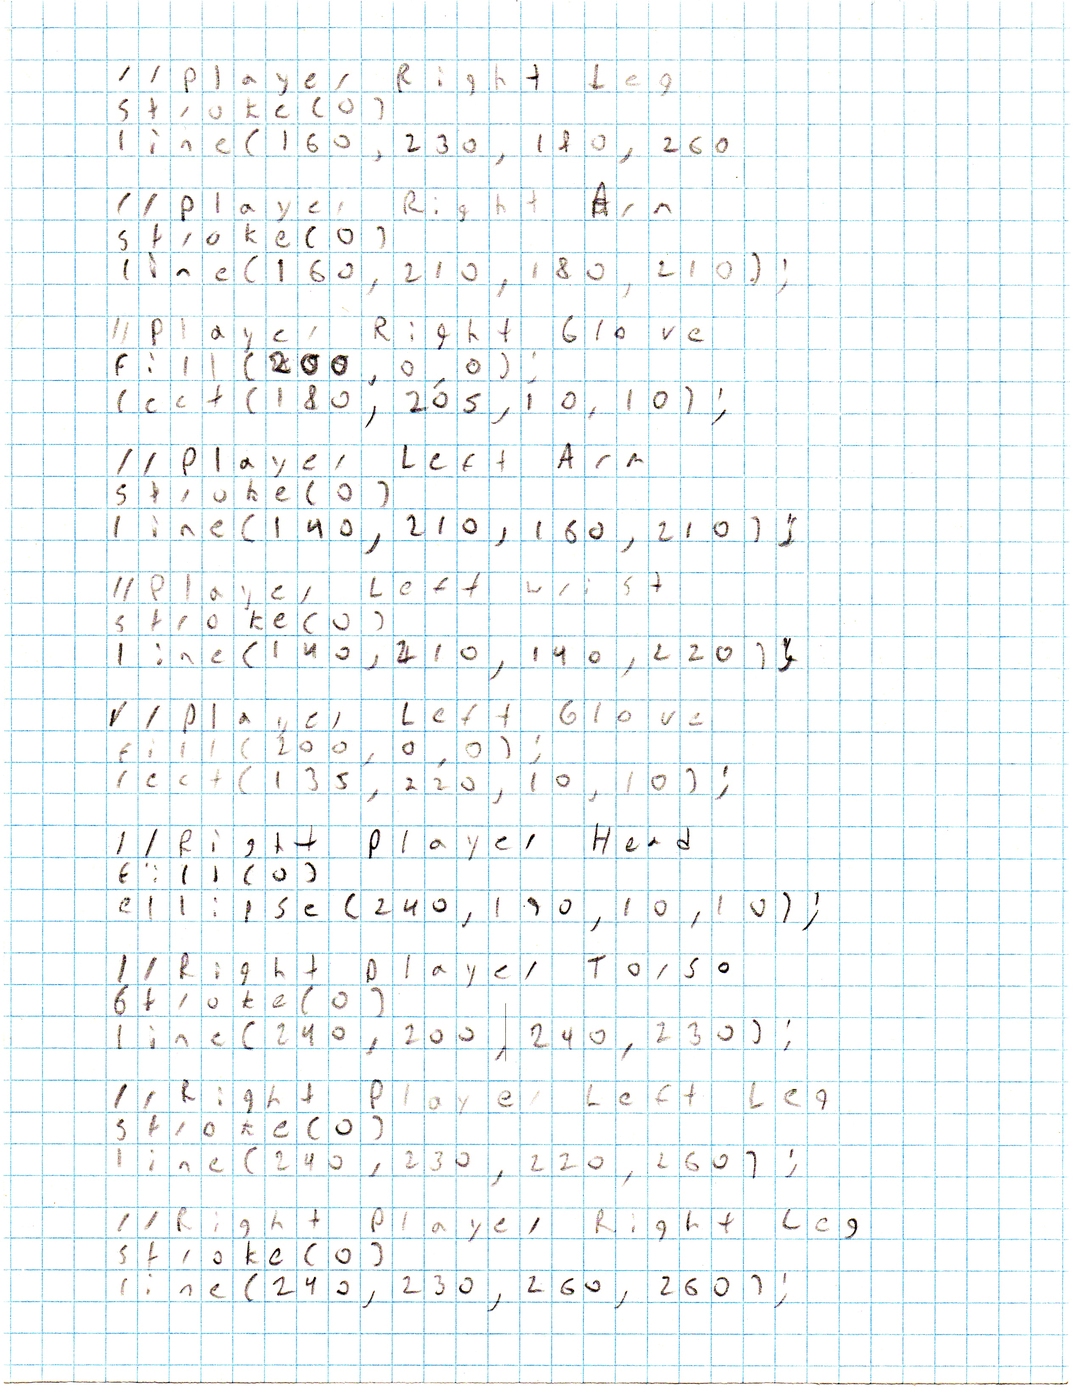 //Player Right Leg
stroke(0)
line(160,230,180,260
//Player Right Arm
stroke(0)
line(160,210,180,210);
//Player Right Glove
fill(200,0,0);
rect(180,205,10,10);
//Player Left Arm
stroke(0)
line(140,210,160,210);
//Player Left wrist
stroke(0)
line(140,210,140,220);
//Player Left Glove
fill(200,0,0);
rect(135,220,10,10);
//Right Player Head
fill(0)
ellipse(240,190,10,10);
//Right Player Torso
stroke(0)
line(240,200,240,230);
//Right Player Left Leg
stroke(0)
line(240,230,220,260);
//Right Player Right Leg
stroke(0)
line(240,230,260,260);